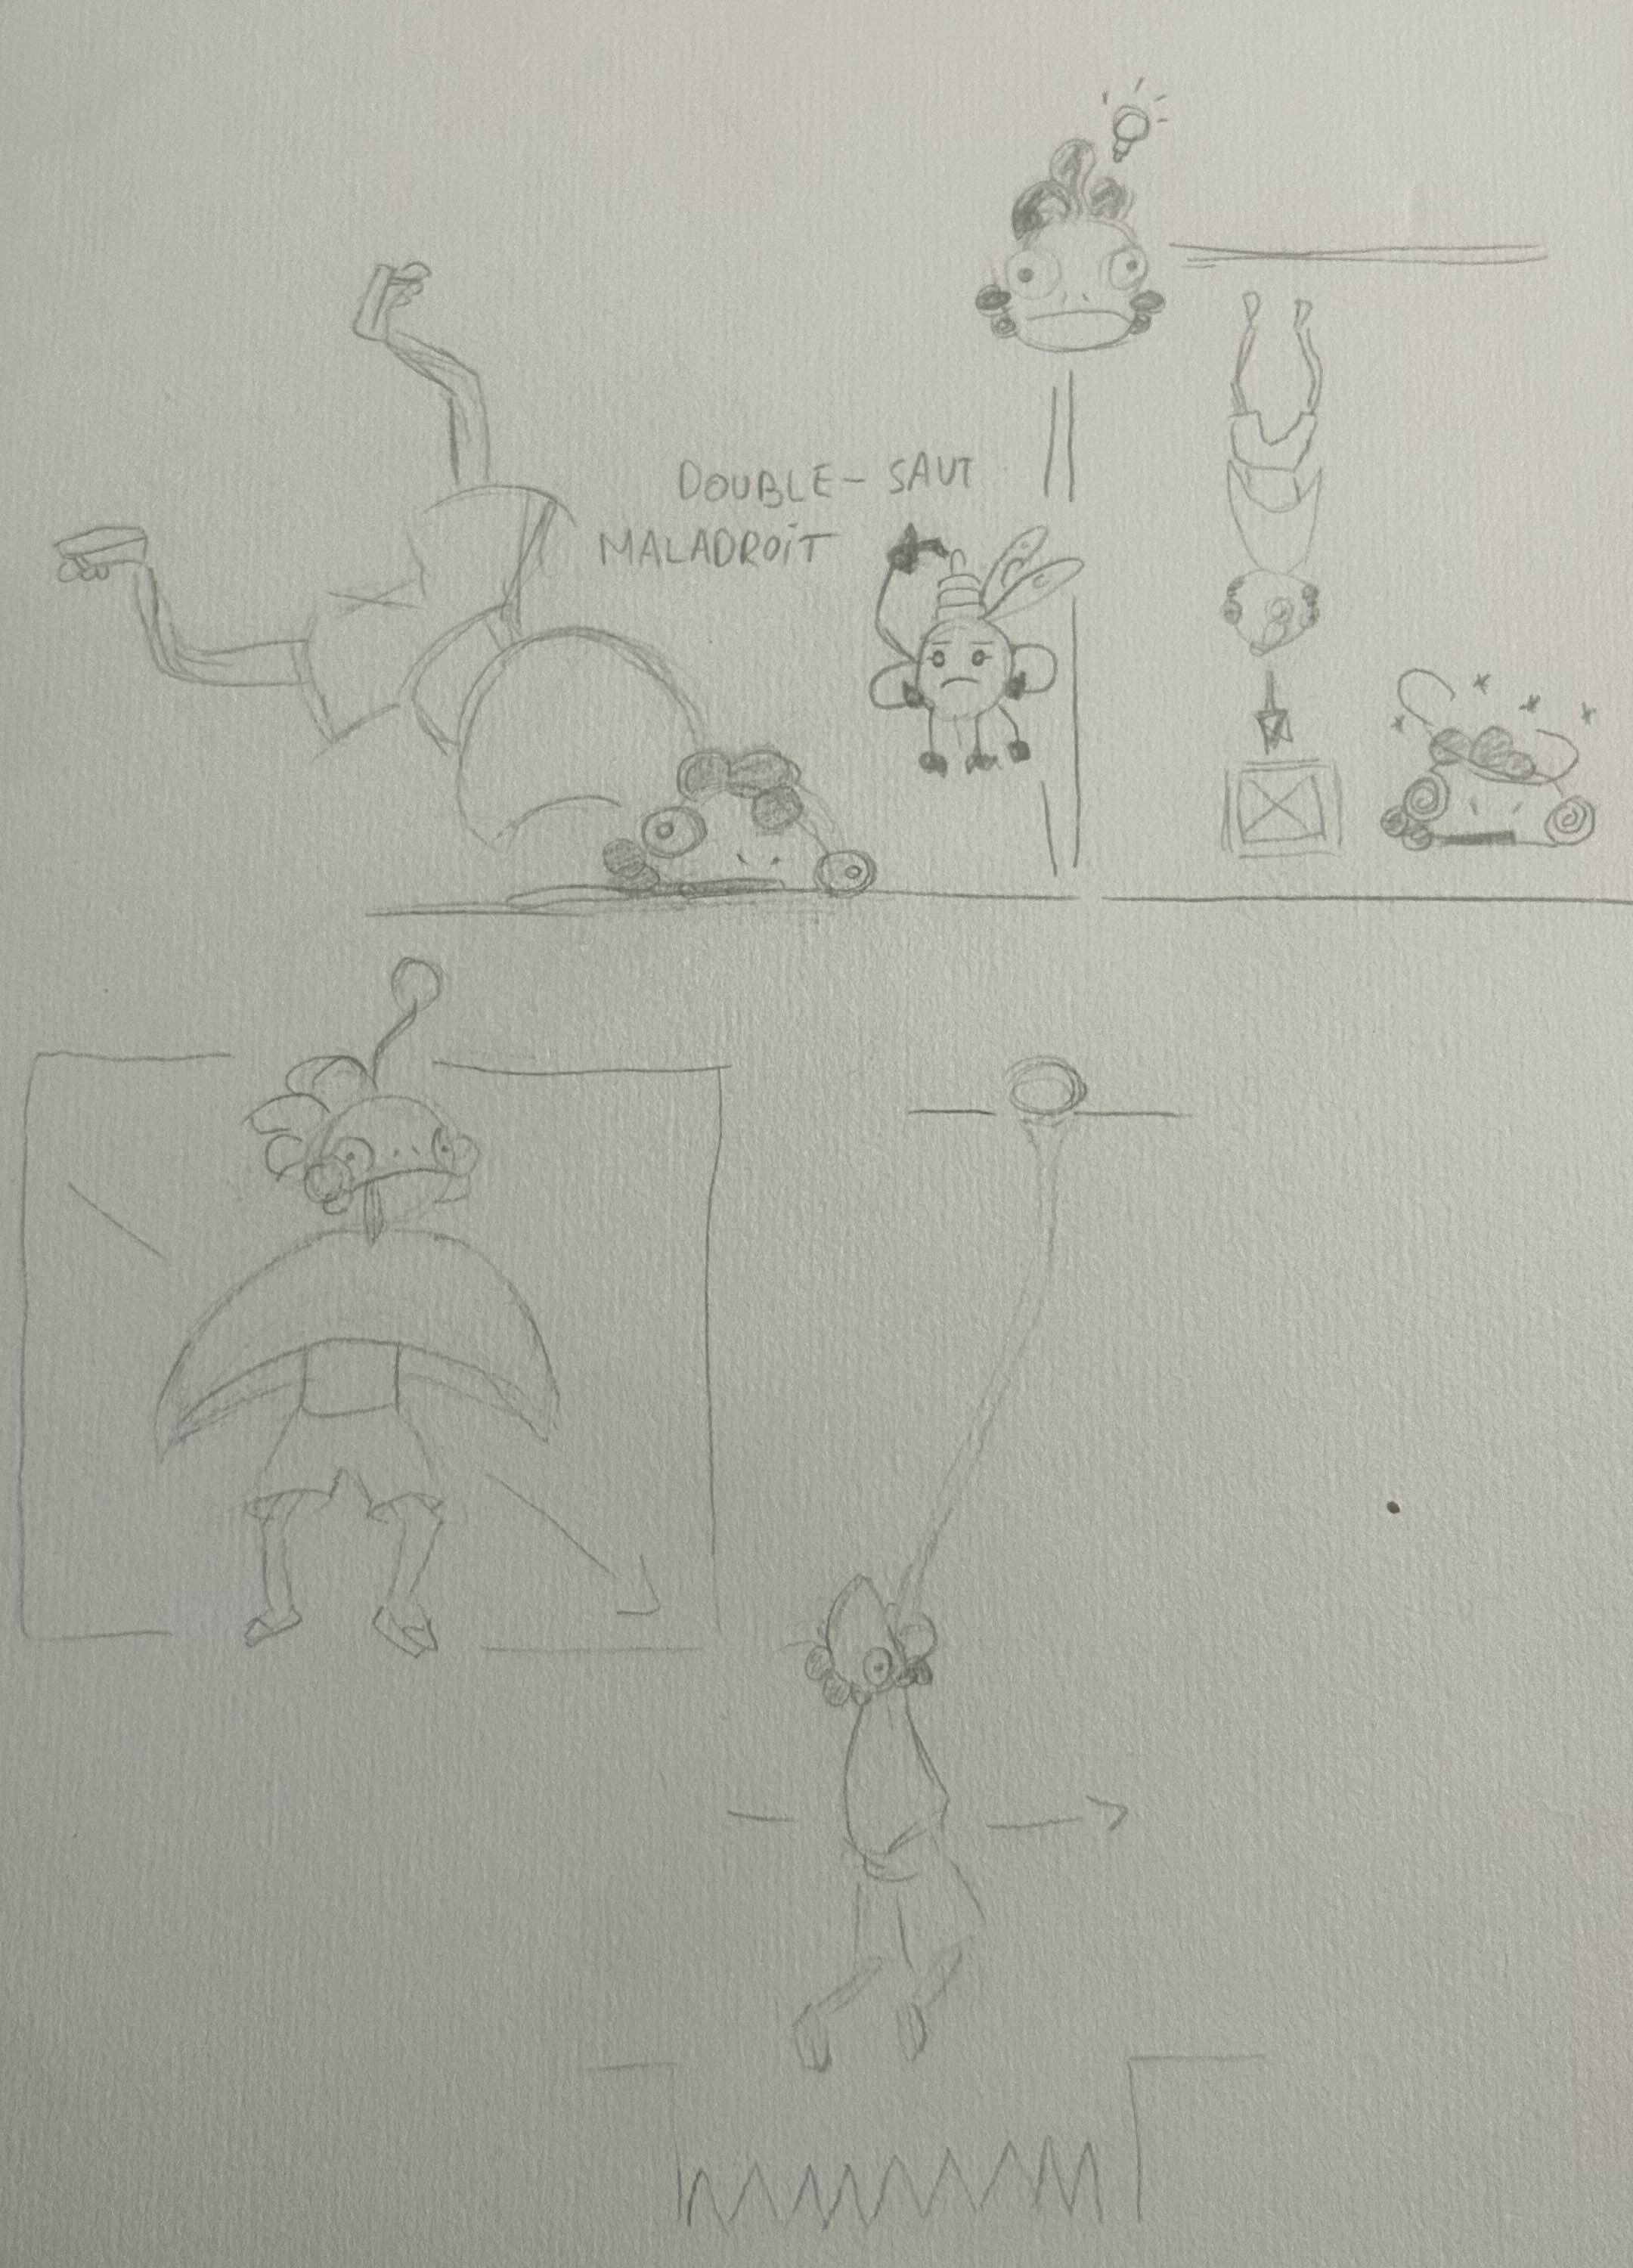 DOUBLE-SAUT
MALADROiT